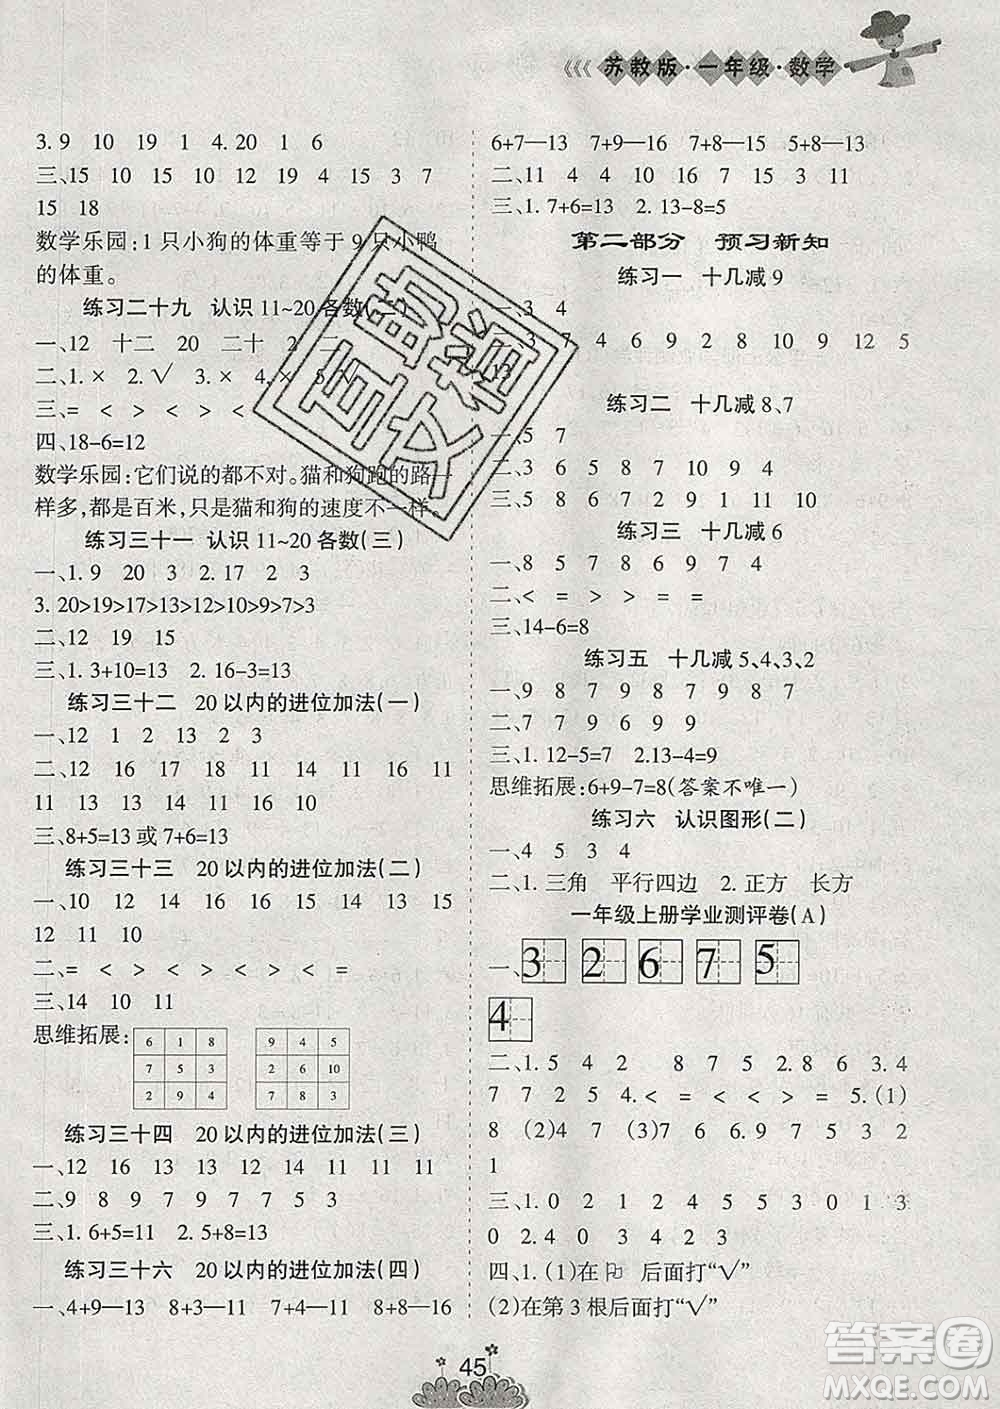 《《《 苏教版·一年级·数学
3. 9 10 19 1 4. 20 1 6
三、15 10 10 19 4 15 3 7
15 18
数学乐园:1 只小狗的体重等于 9 只小鸭
的体重。
练习二十九 认识 11~20 各数(二)
一、12 十二 20 二十 2 二
二、1. × 2. √ 3. × 4. × 5.
三、= < > > < <
四、18-6=12
数学乐园:它们说的都不对。猫和狗跑的路一
样多,都是百米,只是猫和狗的速度不一样。
练习三十一 认识 11~20 各数(三)
一、1. 9 20 3 2. 17 19
3. 20>19>17>13>12>10>9>7>3
二、12 19 15
三、1. 3+10=13 2. 16-3=13
练习三十二 20 以内的进位加法(一)
一、12 1 2 13 2 3
二、12 16 17 18 11 12 16 11
11 13 13 14 11 17 10
三、8+5=13 或 7+6=13
练习三十三 20 以内的进位加法(二)
一、10 12 12 14 11 15 10 15
12 11 10
二、= < < > < > < =
三、14 10 11
思维拓展:
6 1 8
7 5 3
2 9 4
9 4 5
2 6 10
7 8 3
练习三十四 20 以内的进位加法(三)
一、12 16 13 13 12 11 11 11
二、9 8 9 7 9 7 7 5 3
三、1. 6+5=11 2. 5+8=13
练习三十六 20 以内的进位加法(四)
一、4+9—13 8+3—11 7+4—11 8+8—16
6+7—13 7+9—16 9+6—15 5+8—13
二、11 4 4 10 16 7 15 3 11
三、1. 7+6=13 2. 13-8=5
第二部分 预习新知
练习一 十几减 9
一、3 4
二、3 7 4 6 9 2 8 10 9 12 5
13
练习二 十几减 8、7
一、5 7
二、3 6 5 8 7 9 4 6
三、5 8 6 7 7 9 11 10
练习三 十几减 6
一、8 5 7 9 4 6 8
二、< = > > < =
三、14-6=8
练习五 十几减 5、4、3、2
一、9 8 7 9 8 7 9 8 7
二、7 7 9 6 9 9
三、1. 12-5=7 2. 13-4=9
思维拓展:6+9-7=8(答案不唯一)
练习六 认识图形(二)
一、4 5 3 4
二、1. 三角 平行四边 2. 正方 长方
一年级上册学业测评卷(A)
一、3 2 6 7 5
4
二、1. 5 4 2 8 7 5 2. 8 6 3. 4
7 7 2 4. < = < < > = 5. (1)
8 (2)4 7 (3)7 6. 9 7 5 3 2
1
三、1. 0 2 1 2 4 5 5 3 0 1 3
0 2. 9 7 0 4 2 3 8 8 0
四、1. (1)在 后面打“√”
(2)在第 3 根后面打“√”
45
百助文档
答案圈
MXQE.COM